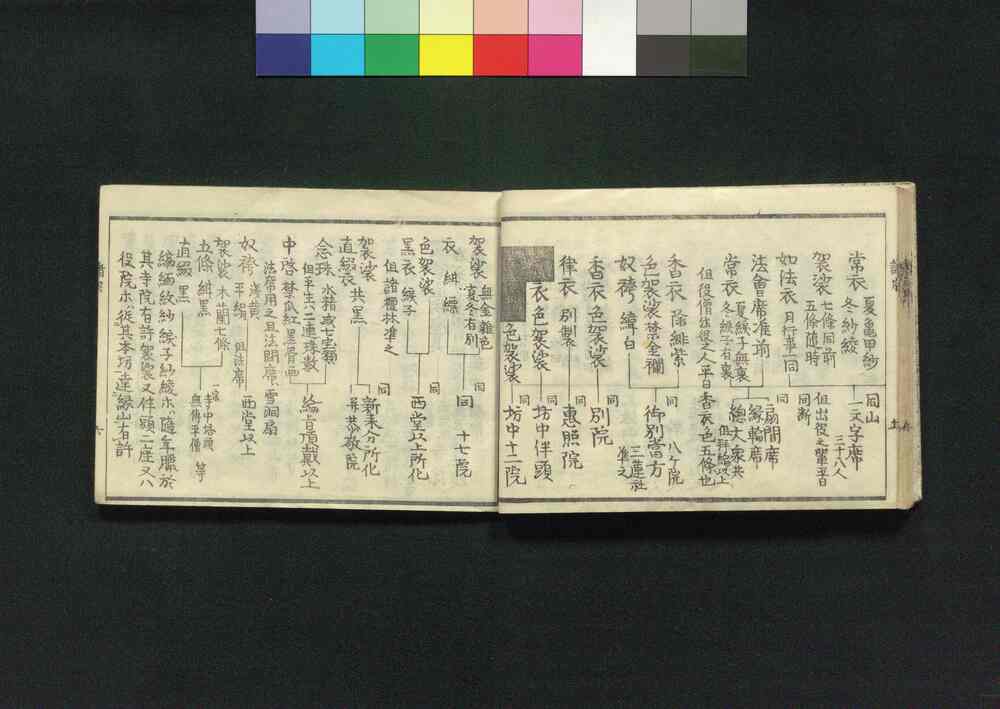 常衣 夏亀甲紗 冬紗綾
同山 一文字席 三十八人
袈裟 七條同前 五條随時
但出役之輩平日
如法衣 月行事一同
同断
法會席准前
扇間席
縁輪席
常衣 夏綟子無裏 冬綟子有裏
總大衆共
但役僧出役之人平日香衣色五條也
香衣 除緋紫
同 八ケ院
色袈裟 禁金襴
御別當方
奴袴 縹白
三蓮社准之
香衣色袈裟
同 別院
律衣 別製
同 惠照院
衣色袈裟
同 坊中伴頭
色袈裟
同 坊中十二院
袈裟 無金雜色 夏冬有別
衣 紺縹
同 十七院
色袈裟
黒衣 綟子
同 西堂以上所化
但諸檀林准之
袈裟 共黒
直綴衣
同 新来分所化
念珠 水精或七寳類
但平生ハ二連珠数
綸旨頂戴以上
中啓 禁瓜紅黒骨
法席用之且法問席雪洞扇
奴袴 浅黄 平絹 但法席
西堂以上
袈裟 木蘭七條
五條 紺黒
直綴 黒
寺中塔頭
無縁平僧 等
縮緬紋紗綟子紗綾ホハ随年臘於
其寺院有許袈裟又伴頭二座又ハ
役院ホ従其本坊達縁山有許